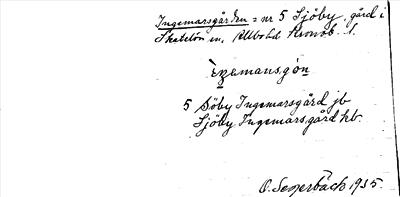 Ingemarsgården = nr 5 Sjöby, gård i
Skatelöv sn, Allbo hd Kronob. l.
ìŋemansgón
5 Söby Ingemarsgård jb
Sjöby Ingemarsgård hb.
O. Segerbäck 1935.